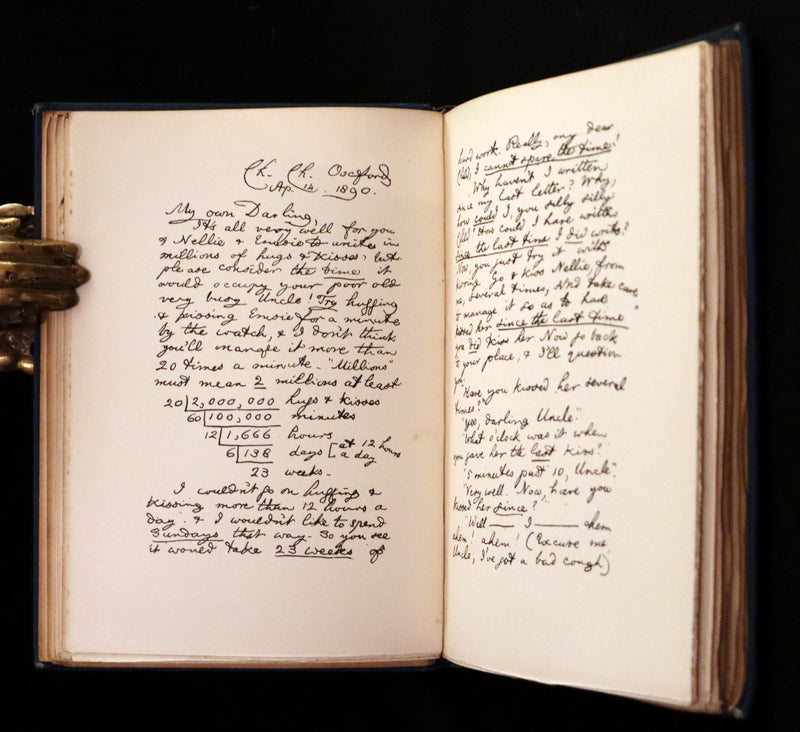 Ch. Ch. Oxford
Ap. 14. 1890.
My own Darling,
It's all very well for you
& Nellie & Emsie to unite in
millions of hugs & kisses, but
please consider the time it
would occupy your poor old
very busy Uncle! Try hugging
& kissing Emsie for a minute
by the watch, & I don't think
you'll manage it more than
20 times a minute. "Millions"
must mean 2 millions at least
20 | 2,000,000 hugs & kisses
60 | 100,000 minutes
12 | 1,666 hours
6 | 138 days [at 12 hours
a day
23 weeks.
I couldn't go on hugging &
kissing more than 12 hours a
day. & I wouldn't like to spend
Sundays that way. So you see
it would take 23 weeks of
hard work. Really, my dear
I cannot spare the time!
Why haven't I written
since my last letter? Why,
how could I, you silly silly
How could I have written
since the last time I did write?
Now, you just try it with
kissing. Go & kiss Nellie, from
me, several times, and take care
to manage it so as to have
kissed her since the last time
you did kiss her. Now go back
to your place, & I'll question
you.
"Have you kissed her several
times?"
"Yes, darling Uncle."
"What o'clock was it when
you gave her the last kiss?"
"5 minutes past 10, Uncle."
"Very well. Now, have you
kissed her since?"
"Well — I — ahem
ahem! ahem! (Excuse me
Uncle, I've got a bad cough)